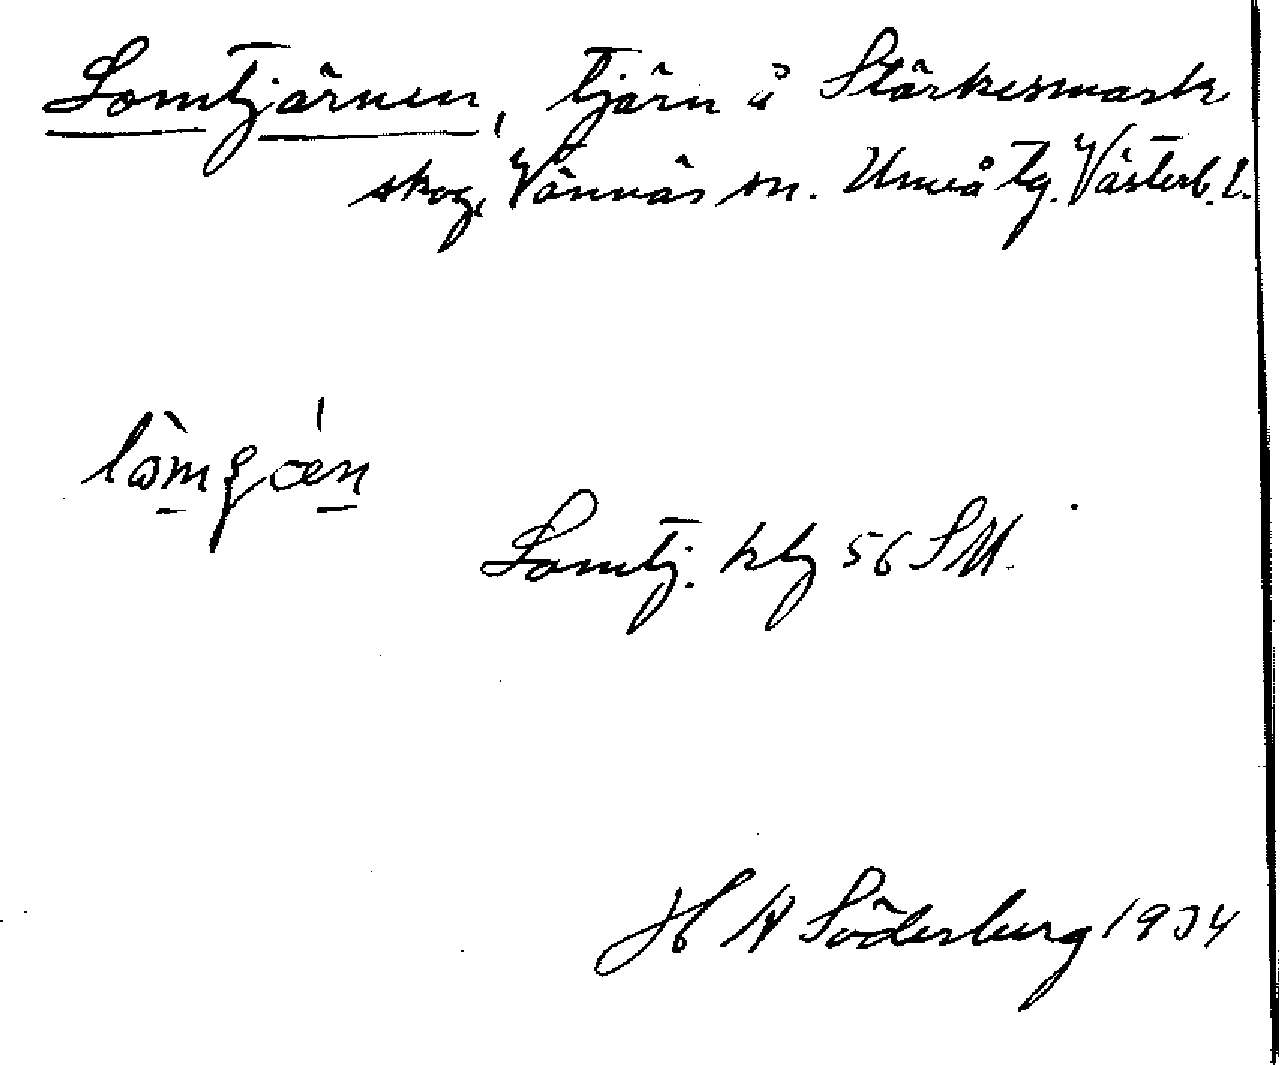 Lomtjärnen, tjärn å Stärkesmark
skog, Vännäs sn. Umeå tg. Västerb. l.
Lomtj. kbg 56 SM.
H N Söderberg 1934